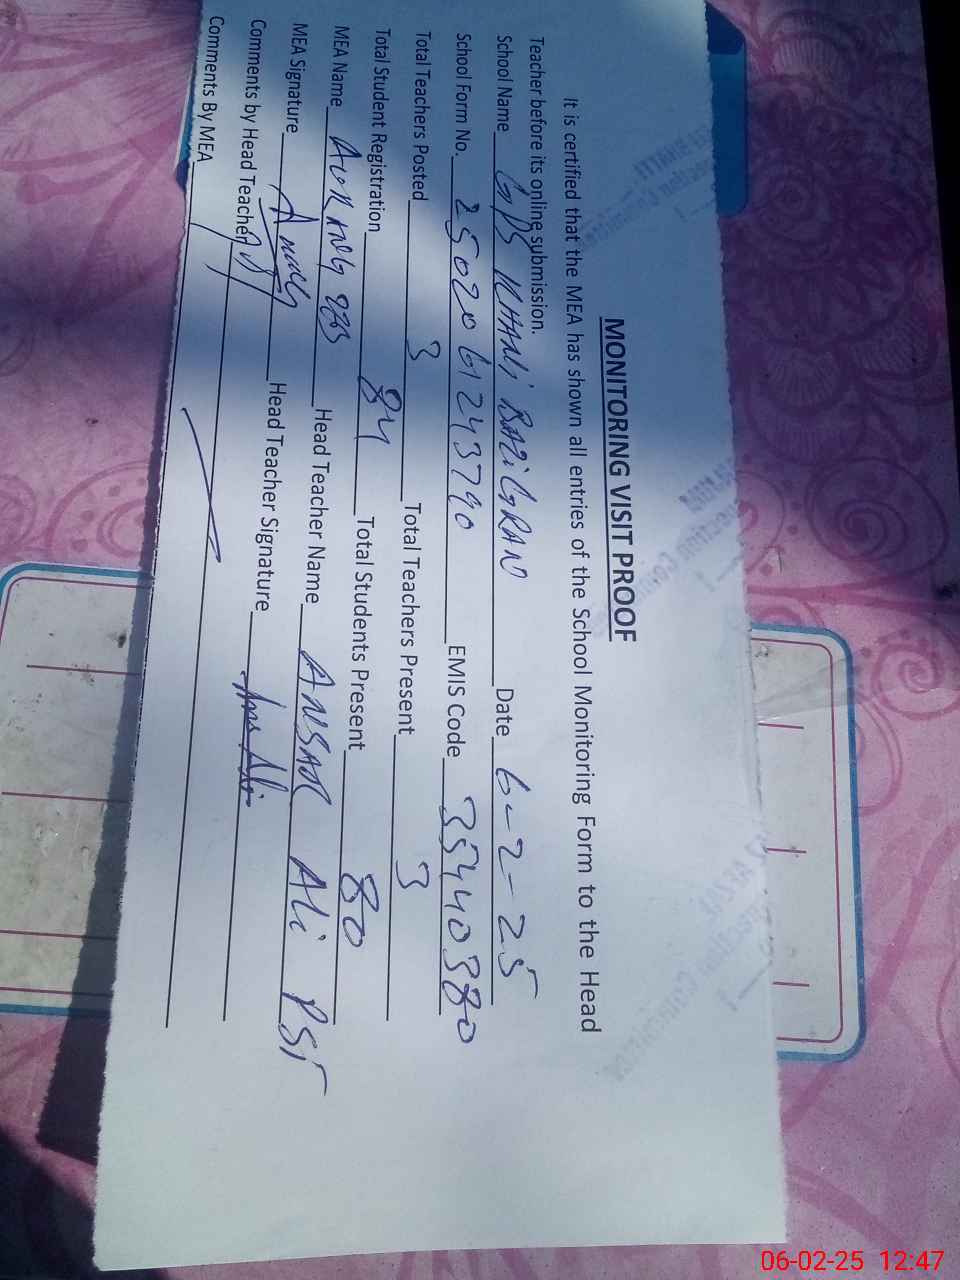 MONITORING VISIT PROOF
It is certified that the MEA has shown all entries of the School Monitoring Form to the Head
Teacher before its online submission.
School Name GPS KHALI BAZIGRAN Date 6-2-25
School Form No. 2502061243790 EMIS Code 35440380
Total Teachers Posted 3 Total Teachers Present 3
Total Student Registration 84 Total Students Present 80
MEA Name Head Teacher Name ANSAR Ali PST
MEA Signature Head Teacher Signature
Comments by Head Teacher
Comments By MEA
06-02-25 12:47